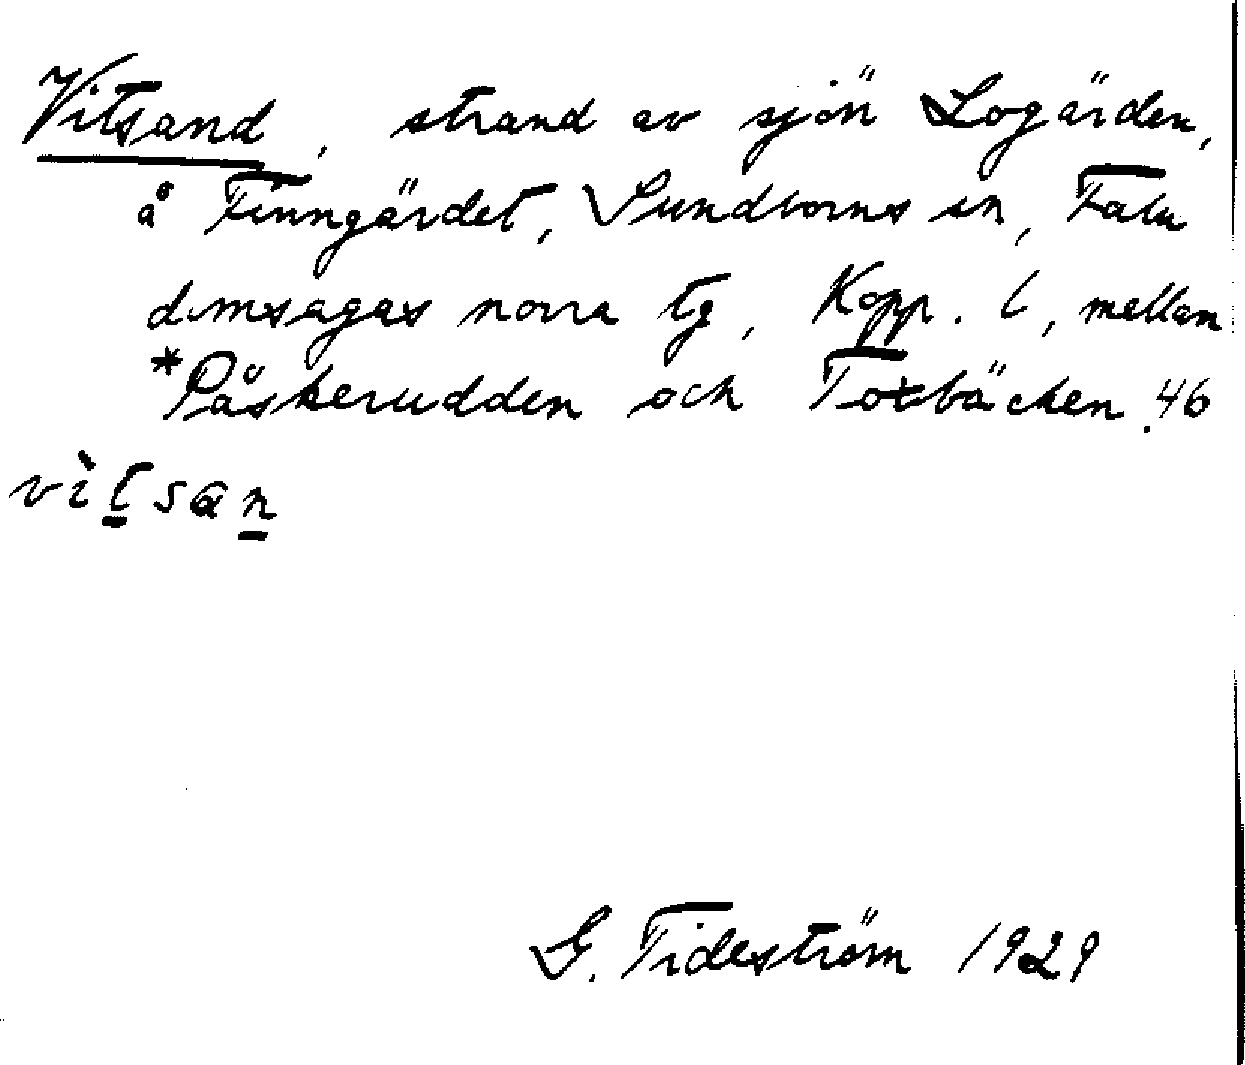 Vitsand, strand av sjön Logärden,
å Finngärdet, Sundborns sn, Falu
domsagas norra tg, Kopp. l, mellan
*Påskerudden och Toxbäcken. 46
vìtsan
G. Tideström 1929